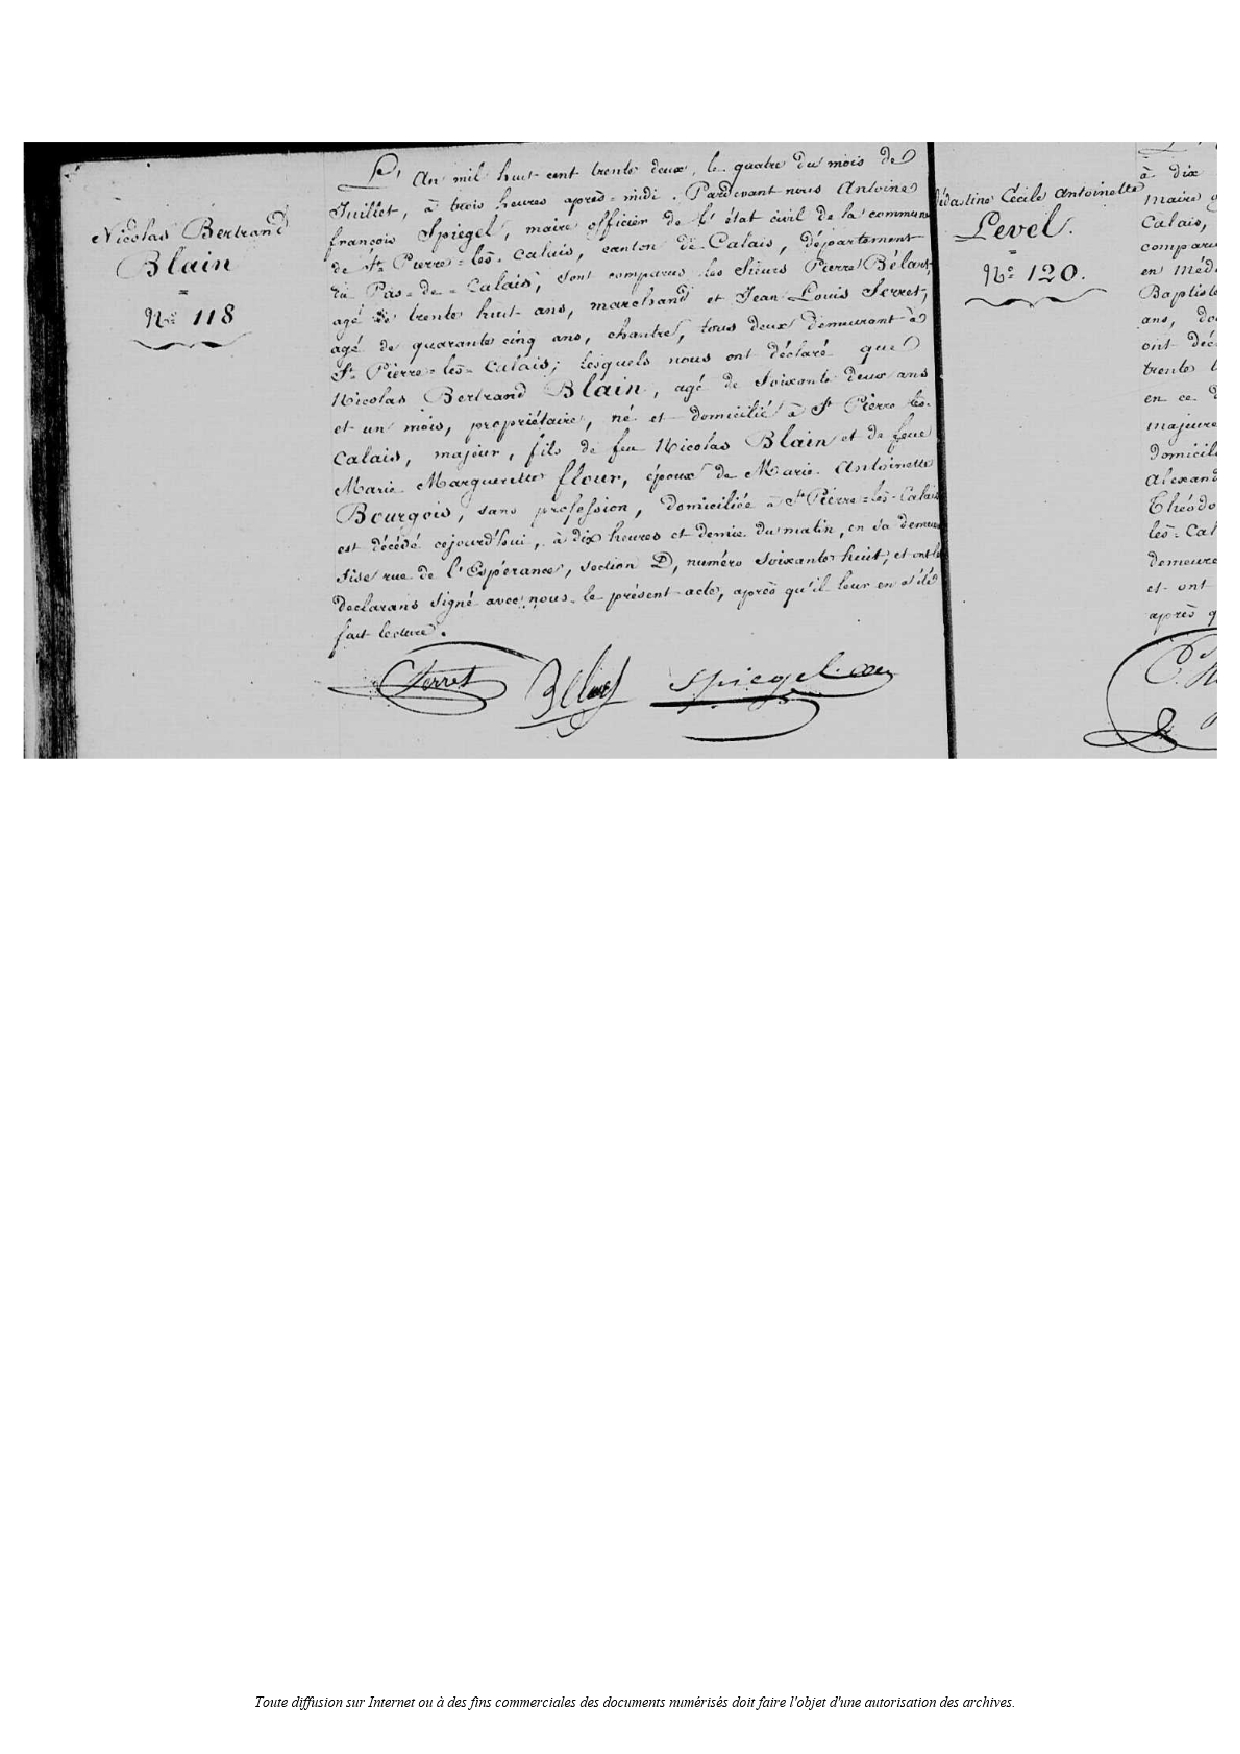 Nicolas Bertrand
Blain
=
N.º 118
L'An mil huit cent trente deux, le quatre du mois de
Juillet, à trois heures après-midi. Pardevant nous Antoine
françois Spiegel, maire officier de l'état civil de la commune
de St Pierre-lès-Calais, canton de Calais, département
du Pas-de-Calais, sont comparus les Sieurs Pierre Bélart,
agé de trente huit ans, marchand et Jean Louis Serret,
agé de quarante cinq ans, chantre, tous deux demeurant à
St Pierre-lès-Calais; lesquels nous ont déclaré que
Nicolas Bertrand Blain, agé de Soixante deux ans
et un mois, propriétaire, né et domicilié à St Pierre lès-
Calais, majeur, fils de feu Nicolas Blain et de feue
Marie Margueritte flour, époux de Marie Antoinette
Bourgois, sans profession, domiciliée à St Pierre-lès-Calais
est décédé cejourd'hui, à dix heures et demie du matin, en sa demeure
sise rue de l'Espérance, section D, numéro soixante huit; et ont les
déclarans signé avec nous le présent acte, après qu'il leur en a été
fait lecture.
Serret Spiegel
Cécile Antoinette
Level.
=
N.º 120.
à dix
maire
Calais,
en
ans,
ont
trente
en ce
Calais
et ont
après
Toute diffusion sur Internet ou à des fins commerciales des documents numérisés doit faire l'objet d'une autorisation des archives.